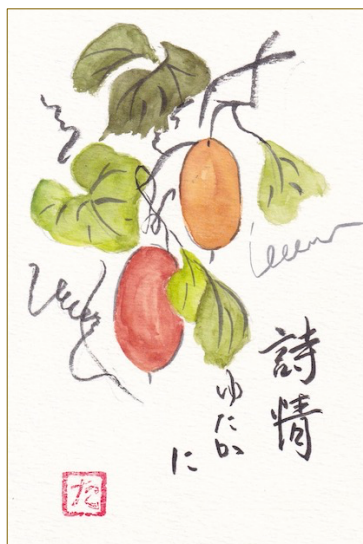 詩情
ゆたか
に